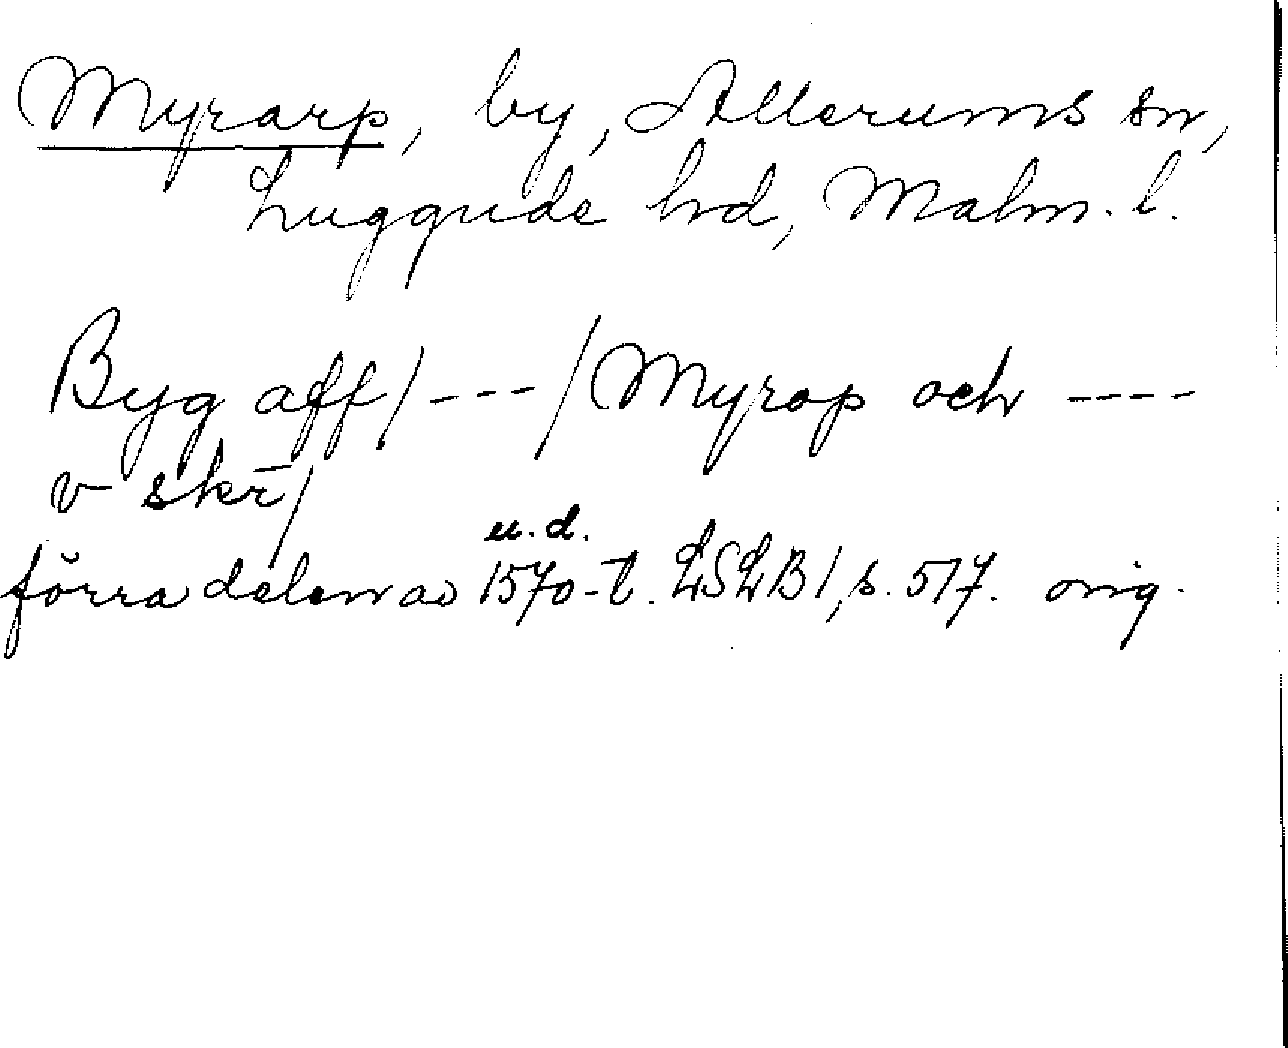 Myrarp, by, Allerums sn,
Luggude hd, Malm. l.
Byg aff/---/Myrop och ----
v skr̄/
u. d.
förra delen av 1570-t. LSLB 1, s. 517. orig.